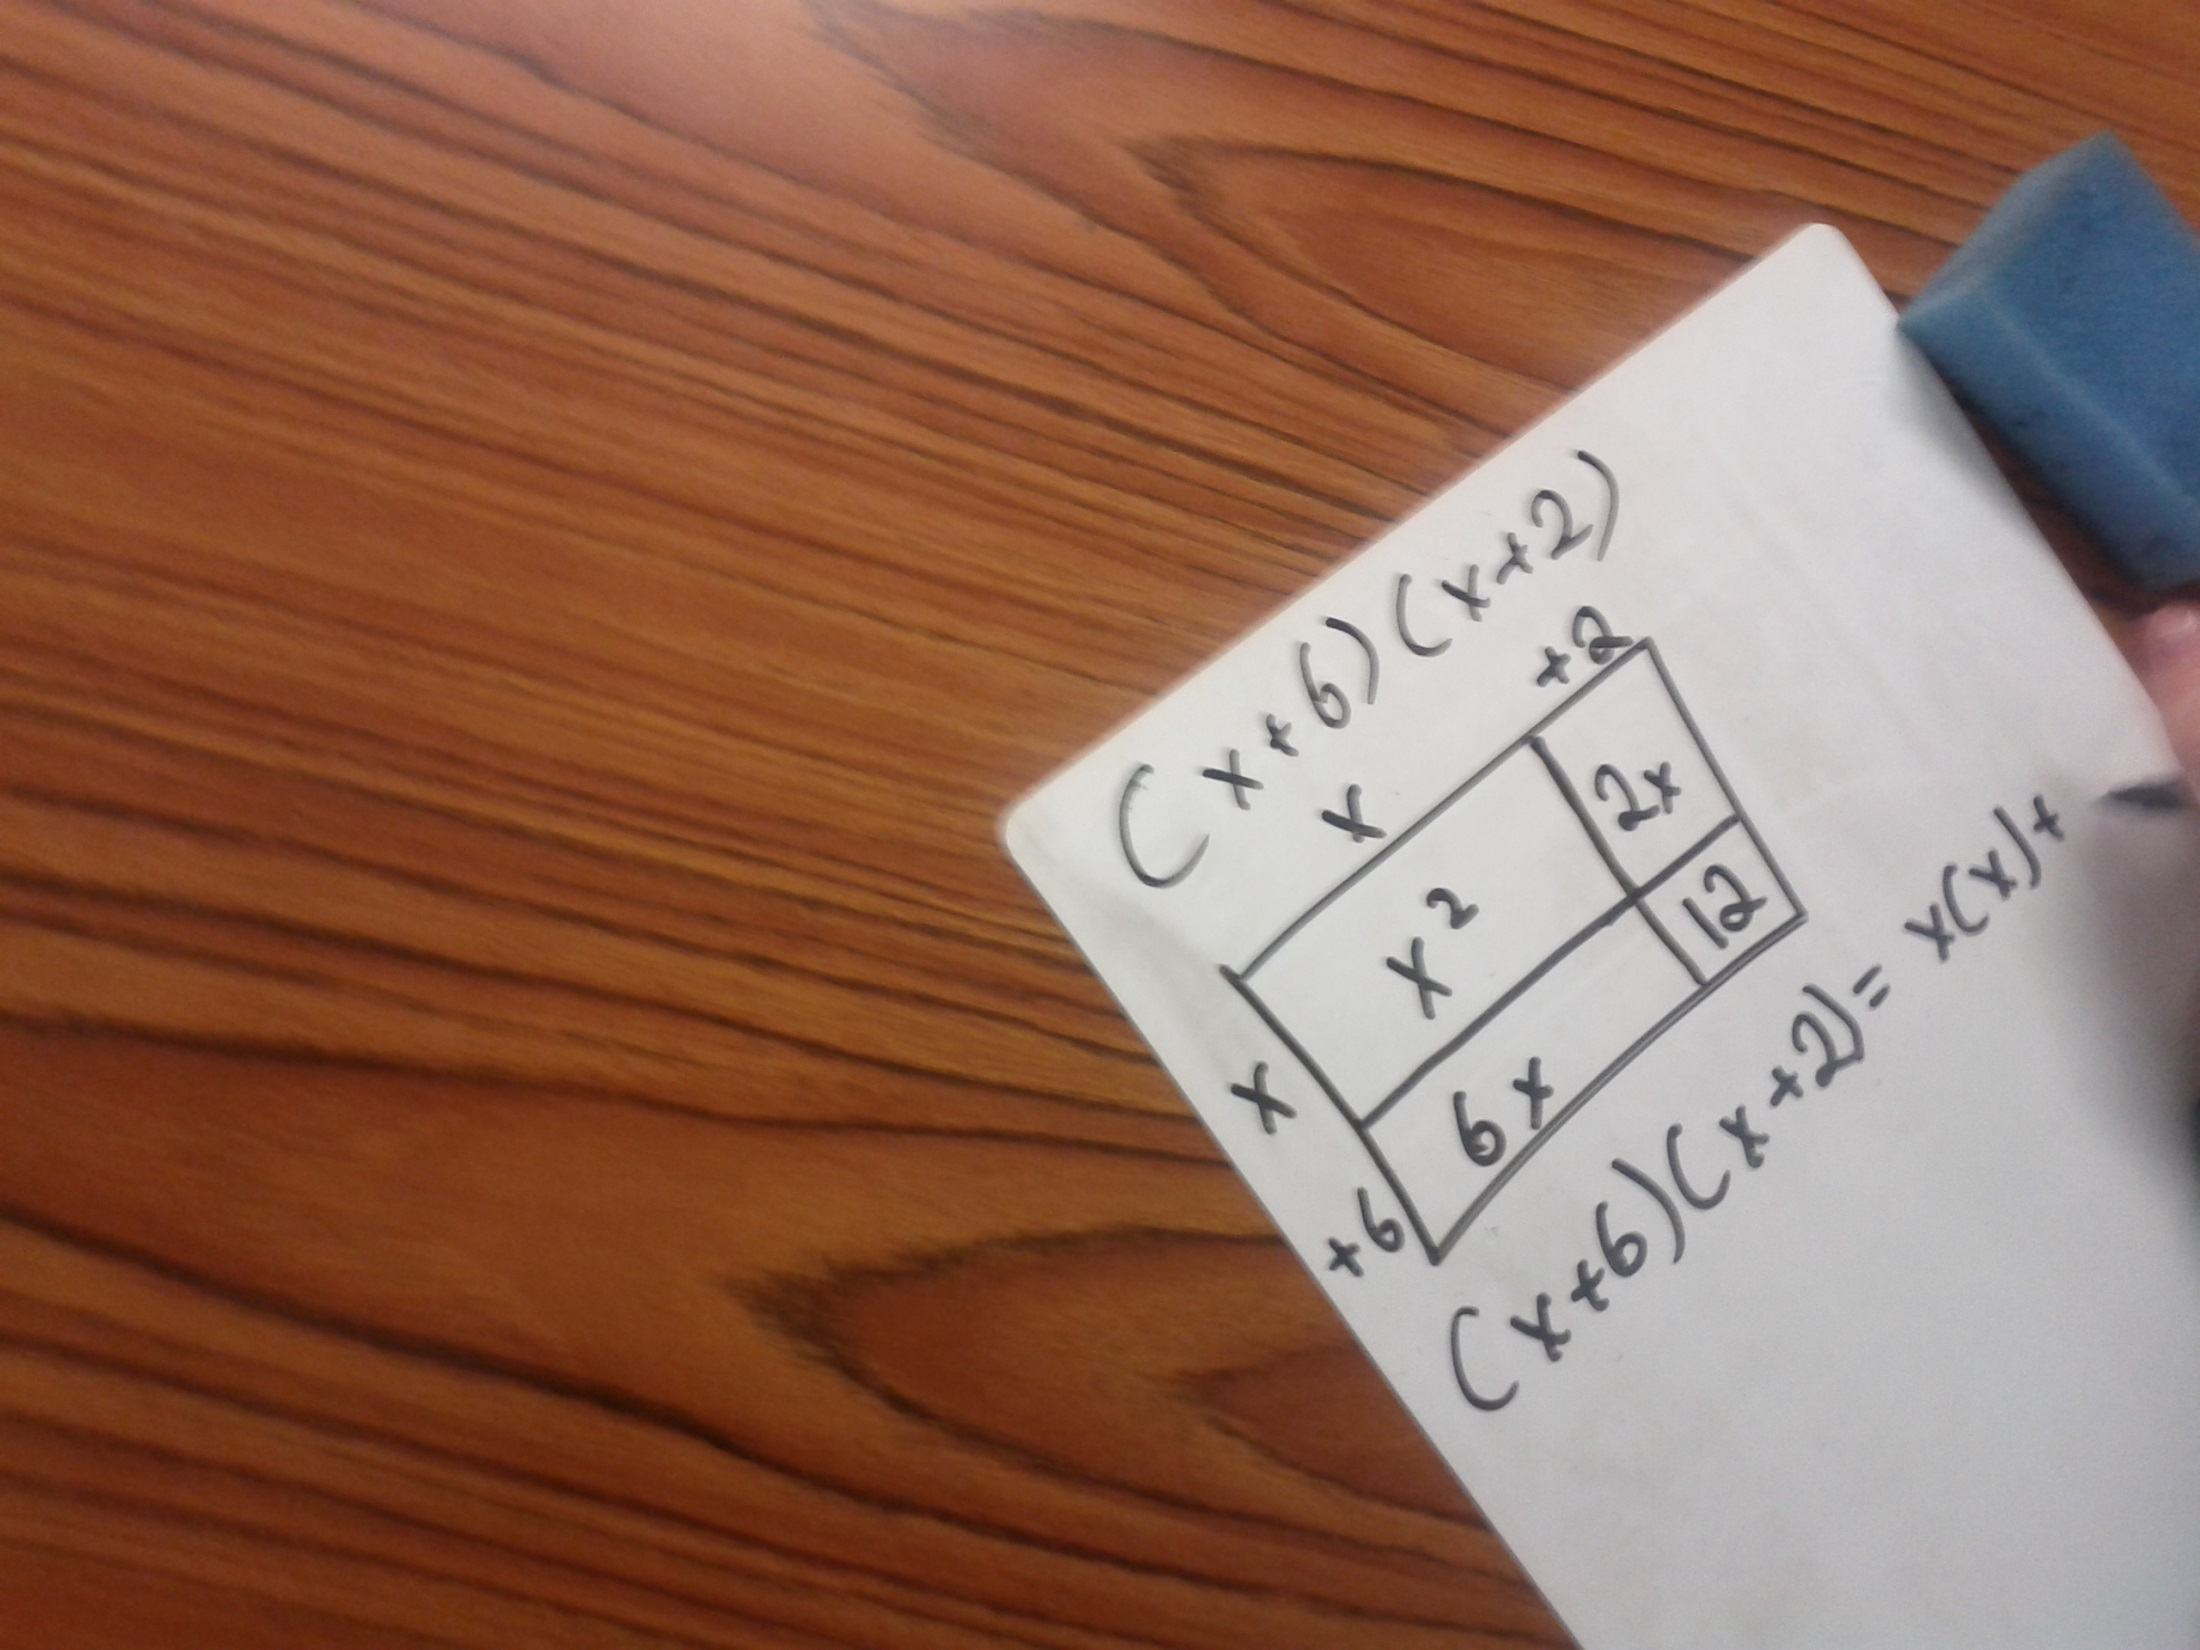 (x+6)(x+2)
x +2
x x² 2x
+6 6x 12
(x+6)(x+2)= x(x)+